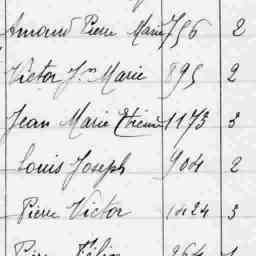 Armand Pierre Marie 756 2
Victor Jn Marie 895 2
Jean Marie Etienne 1173 3
Louis Joseph 904 2
Pierre Victor 1424 3
Félix